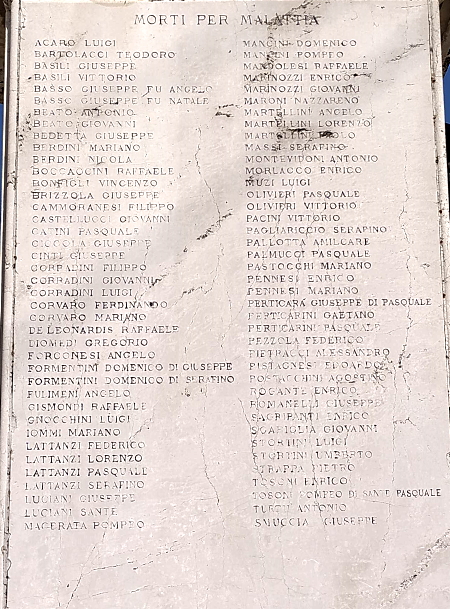 MORTI PER MALATTIA
ACARO LUIGI
BARTOLACCI TEODORO
BASILI GIUSEPPE
BASILI VITTORIO
BASSO GIUSEPPE FU ANGELO
BASSO GIUSEPPE FU NATALE
BEATO ANTONIO
BEATO GIOVANNI
BEDETTA GIUSEPPE
BERDINI MARIANO
BERDINI NICOLA
BOCCACCINI RAFFAELE
BONFIGLI VINCENZO
BRIZZOLA GIUSEPPE
CAMMORANESI FILIPPO
CASTELLUCCI GIOVANNI
CATINI PASQUALE
CICCOLA GIUSEPPE
CINTI GIUSEPPE
CORRADINI FILIPPO
CORRADINI GIOVANNI
CORRADINI LUIGI
CORVARO FERDINANDO
CORVARO MARIANO
DE LEONARDIS RAFFAELE
DIOMEDI GREGORIO
FORCONESI ANGELO
FORMENTINI DOMENICO DI GIUSEPPE
FORMENTINI DOMENICO DI SERAFINO
FULIMENI ANGELO
GISMONDI RAFFAELE
GNOCCHINI LUIGI
IOMMI MARIANO
LATTANZI FEDERICO
LATTANZI LORENZO
LATTANZI PASQUALE
LATTANZI SERAFINO
LUCIANI GIUSEPPE
LUCIANI SANTE
MACERATA POMPEO
MANCINI DOMENICO
MANCINI POMPEO
MANDOLESI RAFFAELE
MARINOZZI ENRICO
MARINOZZI GIOVANNI
MARONI NAZZARENO
MARTELLINI ANGELO
MARTELLINI LORENZO
MARTELLINI PAOLO
MASSI SERAFINO
MONTEVIDONI ANTONIO
MORLACCO ENRICO
MUZI LUIGI
OLIVIERI PASQUALE
OLIVIERI VITTORIO
PACINI VITTORIO
PAGLIARICCIO SERAFINO
PALLOTTA AMILCARE
PALMUCCI PASQUALE
PASTOCCHI MARIANO
PENNESI ENRICO
PENNESI MARIANO
PERTICARÀ GIUSEPPE DI PASQUALE
PERTICARINI GAETANO
PERTICARINI PASQUALE
PEZZOLA FEDERICO
PIETRACCI ALESSANDRO
PISTAGNESI EDOARDO
POSTACCHINI AGOSTINO
ROGANTE ENRICO
ROMANELLI GIUSEPPE
SAGRIPANTI ENRICO
SGARIGLIA GIOVANNI
STORTINI LUIGI
STORTINI UMBERTO
STRAPPA PIETRO
TOSONI ENRICO
TOSONI POMPEO DI SANTE PASQUALE
ANTONIO
SMUCCIA GIUSEPPE